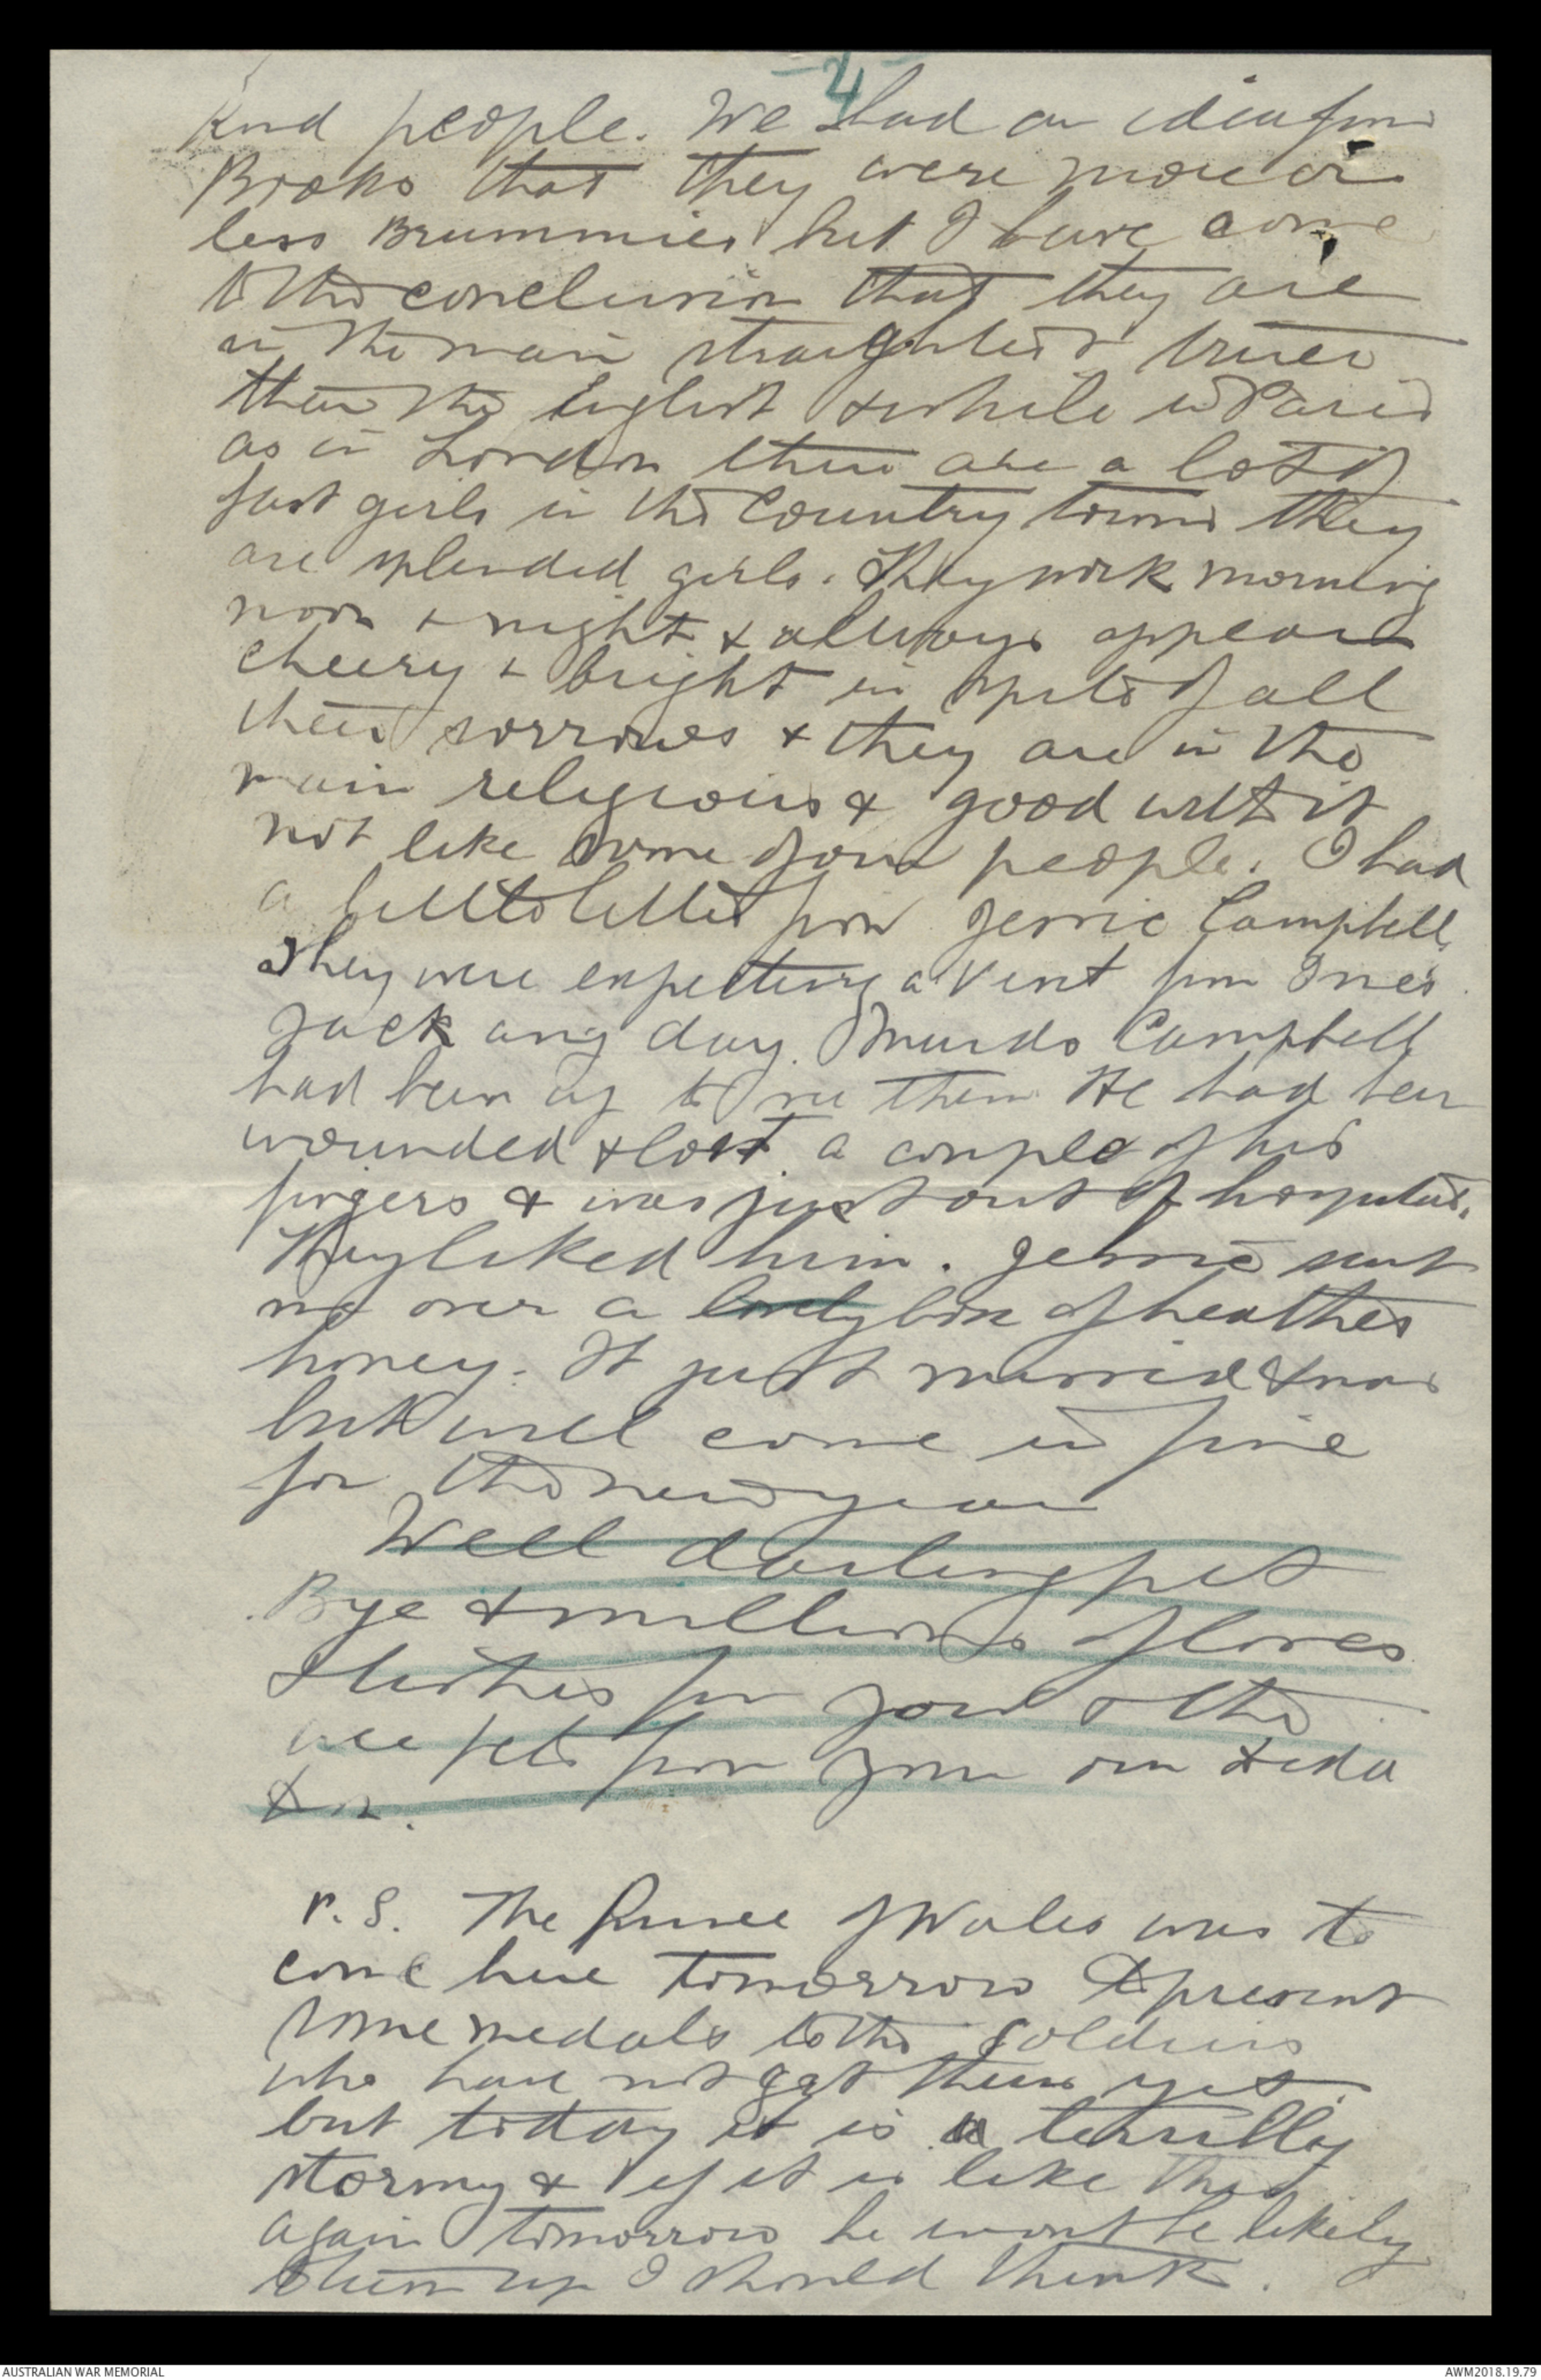 4
kind people. We had an idea from
Books that they were more or
less Brummies but I have come
to the conclusion that they are
in the main straighter & truer
than the English & while in Paris
as in London there are a lot of
fast girls in the Country towns they
are splendid girls. They work morning
noon & night & allways appear
cheery & bright in spite of all
their sorrows & they are in the
main religious & good with it
not like some of our people. I had
a letter from Jessie Campbell.
They were expecting a visit from
Jack any day. Murdo Campbell
had been up to see them He had been
wounded & lost a couple of his
fingers & was just out of hospital.
They liked him. Jessie sent
me over a lovely box of heather
honey. It just missed Xmas
but will come in fine
for the new year
Well darling pet
Bye & millions of loves
& kisses for you & the
wee pets from your own
xx.
P.S. The Prince of Wales was to
come here tomorrow to present
some medals to the soldiers
who have not got them yet.
but today it is terribly
stormy & if it is like this
again tomorrow he wont be likely
to turn up I should think.
AUSTRALIAN WAR MEMORIAL
AWM2018.19.79